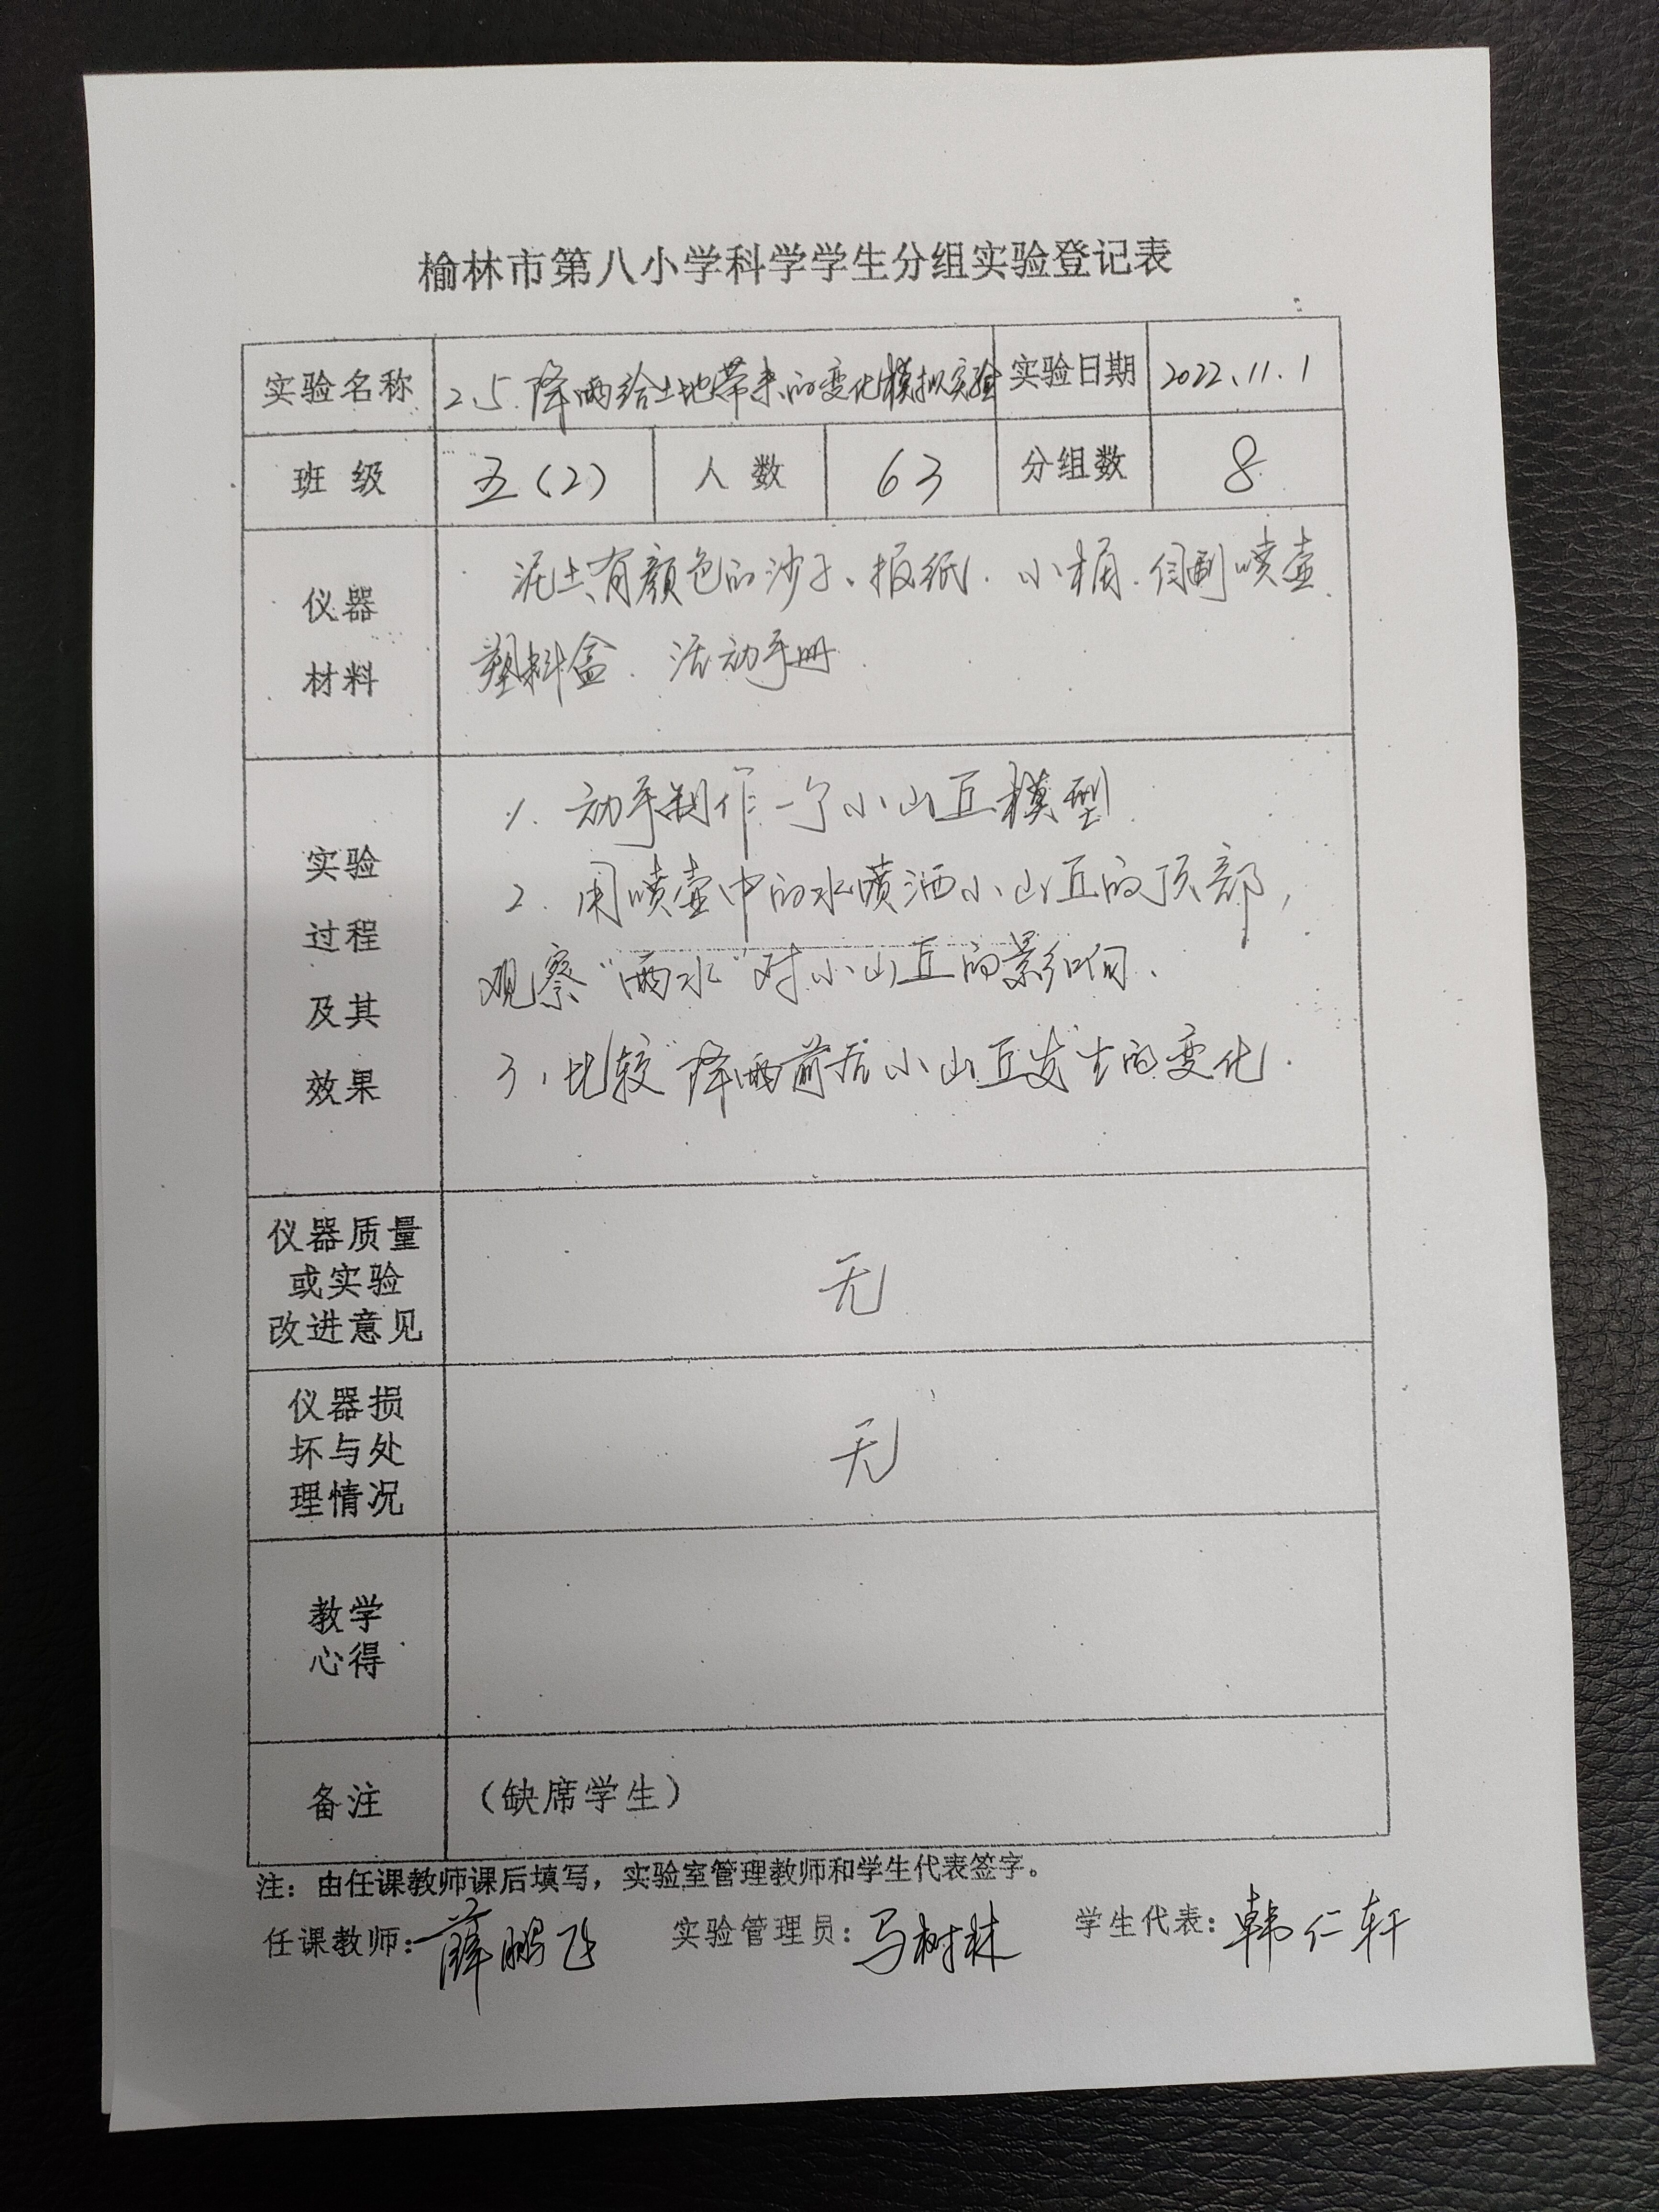 榆林市第八小学科学学生分组实验登记表
实验名称 2.5.降雨给土地带来的变化模拟实验 实验日期 2022.11.1
班 级 五(2) 人 数 63 分组数 8
仪器
材料
泥土、有颜色的沙子、报纸、小桶、自制喷壶、
塑料盒、活动手册.
实验
过程
及其
效果
1. 动手制作一个小山丘模型.
2. 用喷壶中的水喷洒小山丘的顶部,
观察“雨水”对小山丘的影响.
3、比较“降雨”前后小山丘发生的变化.
仪器质量
或实验
改进意见
无
仪器损
坏与处
理情况
无
教学
心得
备注 （缺席学生）
注：由任课教师课后填写，实验室管理教师和学生代表签字。
任课教师：薛鹏飞 实验管理员：马树林 学生代表：韩仁轩